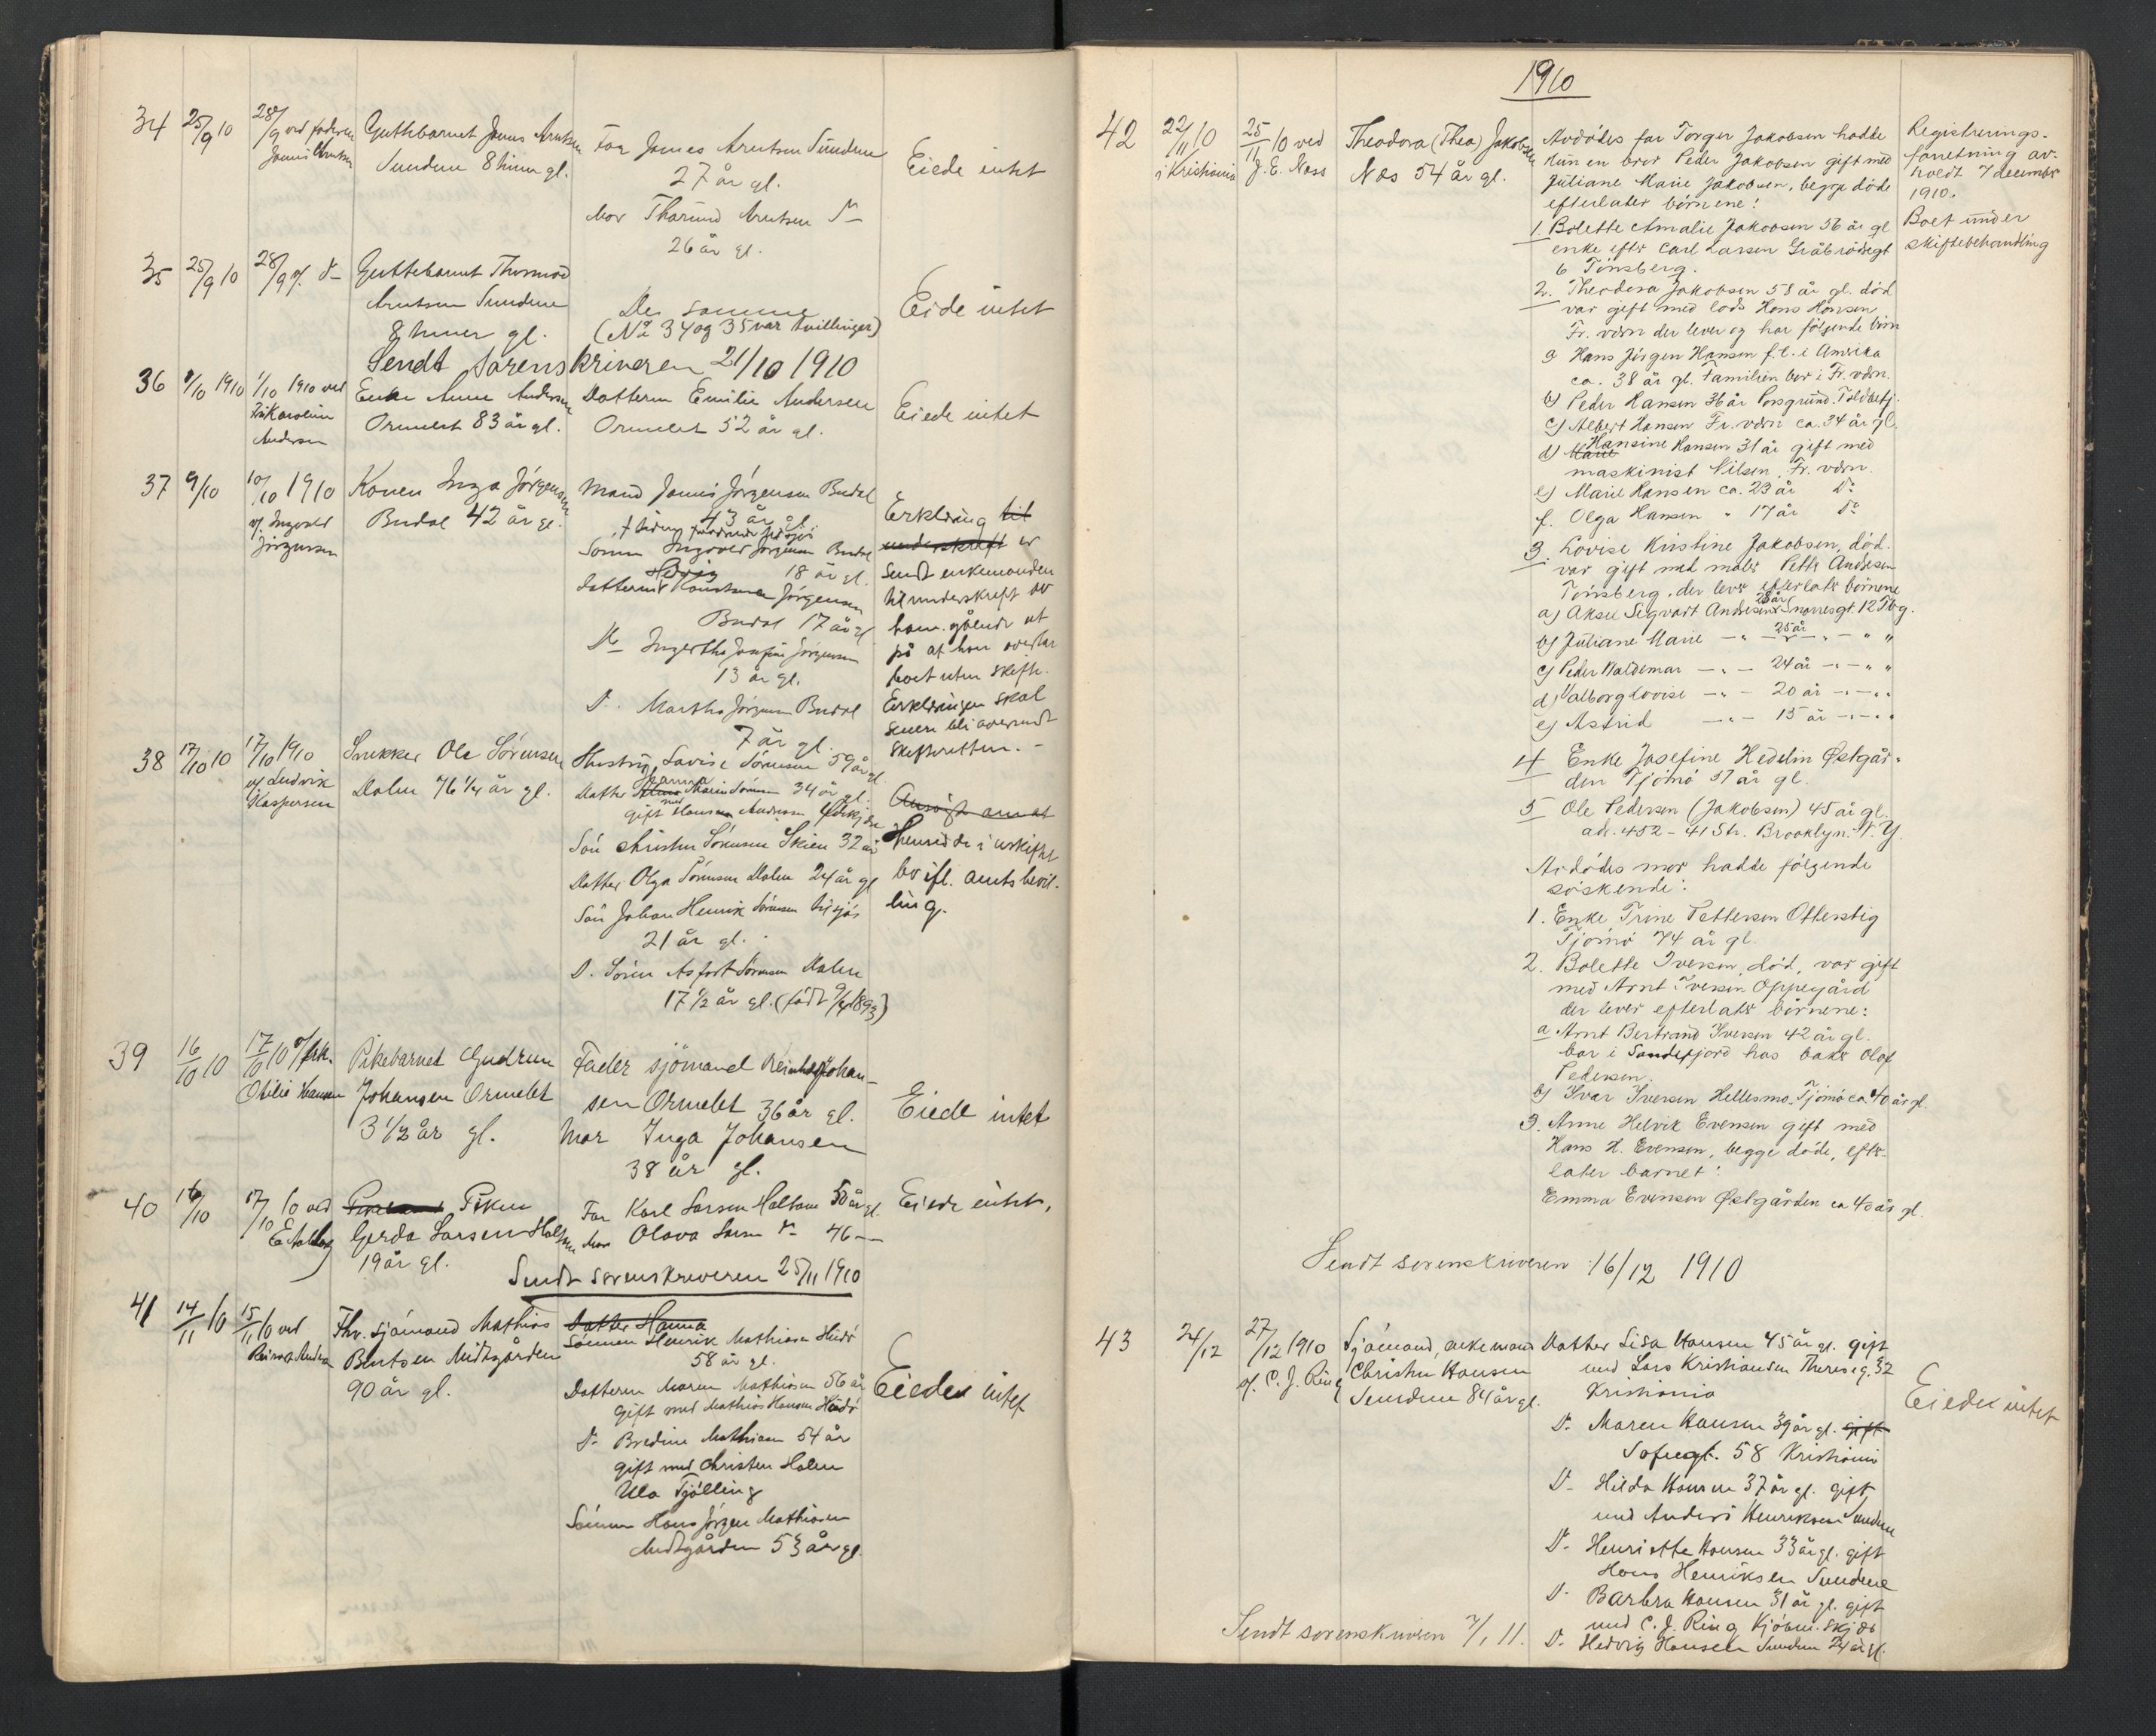 34 25/9 10 28/9 ved faderen Guttebarnet Arntsen
Sundene 8 timer gl.
Far James Arntsen Sundene
27 år gl.
Mor Arntsen D–
26 år gl.
Eiede intet
35 25/9 10 28/9 D– Guttebarnet
Arntsen Sundene
8 timer gl.
De samme
(No 34 og 35 var tvillinger)
Eide intet
Sendt sorenskriveren 21/10 1910
36 /10 1910 1/10 1910 ved
Andersen
Enke Anne Andersen
Ormelet 83 år gl.
Datteren Emilie Andersen
Ormelet 52 år gl.
Eiede intet
37 9/10 10/10 1910
v/ Ingvald
Jörgensen
Konen Inga Jörgensen
Budal 42 år gl.
Mand Jörgensen Budal
43 år gl.
Sönnen Ingvald Jörgensen Budal
18 år gl.
Jörgensen
Budal 17 år gl
Jörgensen
13 år gl.
D. Martha Jörgensen Budal
7 år gl.
Erklæring til
underskrift er
sendt enkemanden
til underskrift av
ham. gående ut
på at han overtar
boet uten skifte.
Erklæringen skal
senere bli oversendt
skifteretten. –
38 17/10 10 17/10 1910
v/ Ludvik
Kaspersen
Snekker Ole Sörensen
Dalen 76 1/4 år gl.
Hustru, Lovise Sörensen 59 år gl
Datter Hanna Sörensen 34 år gl.
gift med Hansen Andersen
Sön Sörensen Skien 32 år
Datter Olga Sörensen Dalen 24 år gl
Sön Johan Henrik Sörensen tilsjös
21 år gl.
D. Sören Sörensen Dalen
17 1/2 år gl. (födt 9/4 1893)
Ansögt om at
Hensidde i uskiftet
bo ifl. amts bevil-
ling.
39 16/10 10 17/10 10 v/ frk.
Otilie Hansen
Pikebarnet Gudrun
Johansen Ormelet
3 1/2 år gl.
Fader sjömand Johan-
sen Ormelet 36 år gl.
Mor Inga Johansen
38 år gl.
Eiede intet
40 16/10 17/10 10 ved
Piken
Gerda Larsen
19 år gl.
Far Karl Larsen 50 år gl.
Mor Olava Larsen D– 46 –
Eiede intet.
Sendt sorenskriveren 25/11 1910
41 14/11 10 15/11 10 ved
Fhv. sjömand Mathias
Bentsen Midtgården
90 år gl.
Datter Hanna
Sönnen Henrik Mathiasen Hudö
58 år gl.
Datteren Maren Mathiasen 56 år
gift med Mathias Hansen Hudö
D– Bredine Mathiasen 54 år
gift med Christen Holen
Ula Tjölling
Sönnen Hans Jörgen Mathiasen
Midtgården 53 år gl.
Eiede intet
1910
42 22/11 10
i Kristiania
25/11 10 ved
J. E. Næss
Theodora (Thea) Jakobsen
Næs 54 år gl.
Avdödes far Torger Jakobsen hadde
kun en bror Peder Jakobsen gift med
Juliane Marie Jakobsen, begge döde
efterlater börnene:
1. Bolette Amalie Jakobsen 56 år gl
enke efter Carl Larsen Gråbrödregt
6 Tönsberg.
2. Theodora Jakobsen 58 år gl. död
var gift med lods Hans Hansen
Fr. værn der lever og har fölgende börn
a Hans Jörgen Hansen f.t. i Amerika
ca. 38 år gl. Familien bor i Fr. værn.
b) Peder Hansen 36 år Porsgrund. Toldbetj.
c) Albert Hansen Fr. værn ca. 34 år gl.
d) Marie Hansine Hansen 31 år gift med
maskinist Nilsen, Fr. værn.
e) Marie Hansen ca. 23 år Do
f. Olga Hansen " 17 år Do
3. Lovise Kristine Jakobsen, död.
var gift med maler Petter Andersen
Tönsberg, der lever efterlater börnene
a) Aksel Sigvart Andersen 28 år Snorresgt. 12 Tbg.
b) Juliane Marie –"– 25 år –"– " "
c) Peder Valdemar –"– 24 år –"– " "
d) Valborg Lovise –"– 20 år –"– " "
e) Astrid –"– 15 år –"– " "
4 Enke Josefine Hedelin Østgår-
den Tjömö 57 år gl.
5 Ole Pedersen (Jakobsen) 45 år gl.
adr. 452 – 41 Str. Brooklyn. N.Y.
Avdödes mor hadde fölgende
söskende:
1. Enke Trine Pettersen Otterstig
Tjömö 74 år gl.
2. Bolette Iversen, död, var gift
med Arnt Iversen Oppegård
der lever efterlater börnene:
a Arnt Bertrand Iversen 42 år gl.
bor i Sandefjord hos baker Olaf
Pedersen.
b) Ivar Iversen Hellesmo, Tjömö ca. 40 år gl.
3. Anne Helvik Evensen gift med
Hans H. Evensen, begge döde, efter-
later barnet:
Emma Evensen Østgården ca 40 år gl.
Registrerings-
forretning av-
holdt 7 december
1910.
Boet under
skiftebehandling
Sendt sorenskriveren 16/12 1910
43 24/12 27/12 1910
v/ C. J. Ring
Sjömand, enkemand
Christen Hansen
Sundene 84 år gl.
Datter Lisa Hansen 45 år gl. gift
med Lars Kristiansen Theresg. 32
Kristiania
D. Maren Hansen 39 år gl. gift
Sofiegt. 58 Kristiania
D– Hilda Hansen 37 år gl. gift
med Anders Henriksen Sundene
D. Henriette Hansen 33 år gl. gift
Hans Henriksen Sundene
D. Barbra Hansen 31 år gl. gift
med C. J. Ring
D. Hedvig Hansen Sundene 24 år gl.
Eiede intet
Sendt sorenskriveren 7/1 11.